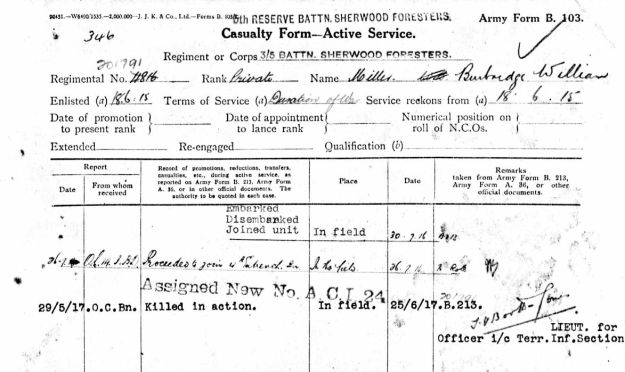 20451.—W8490/1535.—2,000,000—J. J. K. & Co., Ltd.—Forms B. 103/
5th RESERVE BATTN. SHERWOOD FORESTERS.
Army Form B. 103.
346
Casualty Form—Active Service.
Regiment or Corps 3/5 BATTN. SHERWOOD FORESTERS.
201791
Regimental No. Rank Private Name Miller Burbridge William
Enlisted (a) 18.6.15 Terms of Service (a) Duration of War Service reckons from (a) 18. 6. 15
Date of promotion to present rank
Date of appointment to lance rank
Numerical position on roll of N.C.Os.
Extended Re-engaged Qualification (b)
Report
Date
From whom received
Record of promotions, reductions, transfers, casualties, etc., during active service, as reported on Army Form B. 213, Army Form A. 36, or in other official documents. The authority to be quoted in each case.
Place
Date
Remarks
taken from Army Form B. 213, Army Form A. 36, or other official documents.
Embarked
Disembarked
Joined unit In field 30.7.16
Proceeded to join In the field 26.7.16
Assigned New No. A.C.I. 24
29/5/17. O.C.Bn. Killed in action. In field. 25/6/17. B.213.
LIEUT. for
Officer i/c Terr.Inf.Section